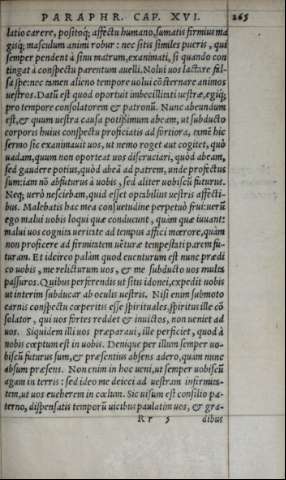 PARAPHR. CAP. XVI. 265
latio carere, positoq; affectu humano, sumatis firmius ma
gisq; masculum animi robur: nec sitis similes pueris, qui
semper pendent à sinu matrum, exanimati, si quando con
tingat à conspectu parentum auelli. Nolui uos lactare fal-
sa spe: nec tamen alieno tempore uolui cōsternare animos
uestros. Datū est quod oportuit imbecillitati uestræ, egiq;
pro tempore consolatorem & patronū. Nunc abeundum
est, & quum uestra causa potissimum abeam, ut subducto
corporis huius conspectu proficiatis ad fortiora, tamē hic
sermo sic exanimauit uos, ut nemo roget aut cogitet, quò
uadam, quum non oporteat uos discruciari, quòd abeam,
sed gaudere potius, quòd abeā ad patrem, unde profectus
sum: iam nō abfuturus à uobis, sed aliter uobiscū futurus.
Neq; uerò nesciebam, quid esset optabilius uestris affecti-
bus. Malebatis hac mea consuetudine perpetuò frui: uerū
ego malui uobis loqui quæ conducunt, quàm quæ iuuant:
malui uos cognita ueritate ad tempus affici mœrore, quàm
non proficere ad firmitatem uēturæ tempestati parem fu-
turam. Et idcirco palàm quod euenturum est nunc prædi
co uobis, me relicturum uos, & me subducto uos multa
passuros. Quibus perferendis ut sitis idonei, expedit uobis
ut interim subducar ab oculis uestris. Nisi enim submoto
carnis conspectu cœperitis esse spirituales, spiritus ille cō
solator, qui uos fortes reddet & inuictos, non ueniet ad
uos. Siquidem illi uos præparaui, ille perficiet, quod à
nobis cœptum est in uobis. Denique per illum semper uo-
biscū futurus sum, & præsentius absens adero, quàm nunc
absum præsens. Non enim in hoc ueni, ut semper uobiscū
agam in terris: sed ideo me deieci ad uestram infirmita-
tem, ut uos eueherem in cœlum. Sic uisum est consilio pa-
terno, dispensatis temporū uicibus paulatim uos, & gra-
Rr 5 dibus